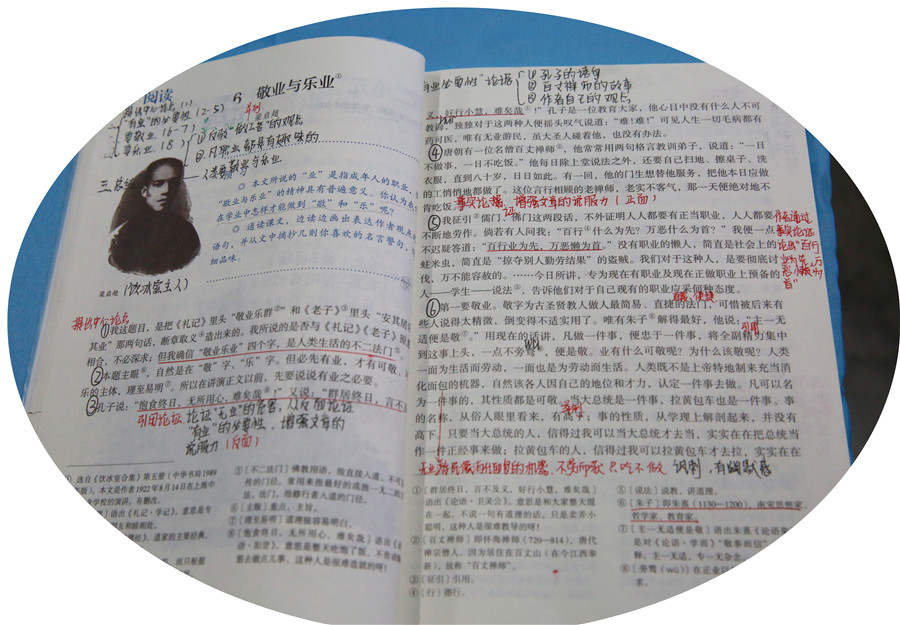 阅读
6 敬业与乐业①
梁启超
提出中心论点(1)
"有业"的必要性(2-5)
要敬业(6-7)
要乐业(8)
并列
②凡职业都是有趣味的
三、总结
◎ 本文所说的"业"是指成年人的职业,
"敬业与乐业"的精神具有普遍意义。你认为我
在学业中怎样才能做到"敬"和"乐"呢?
◎ 通读课文,边读边画出表达作者观点
语句,并从文中摘抄几则你喜欢的名言警句,
细品味。
梁启超
(饮冰室主人)
提出中心论点
①我这题目,是把《礼记》里头"敬业乐群②"和《老子》③里头"安其居
其业"那两句话,断章取义④造出来的。我所说的是否与《礼记》《老子》原
相合,不必深求;但我确信"敬业乐业"四个字,是人类生活的不二法门⑤
②本题主眼⑥,自然是在"敬"字、"乐"字。但必先有业,才有可敬、
乐的主体,理至易明⑦。所以在讲演正文以前,先要说说有业之必要。
③孔子说:"饱食终日,无所用心,难矣哉⑧!"又说:"群居终日,言不
引用论证,论证"无业"的危害,从反面论证
"有业"的必要性,增强文章的
说服力(反面)
① 选自《饮冰室合集》第五册(中华书局1989
版)。本文是作者1922年8月14日在上海中
学校的演讲。有删改。
语出《礼记·学记》,意思是专
朋友和睦相处。
道家的主要经典。
⑤〔不二法门〕佛教用语,指直接入道、不可
传的门径。常用来指最好的或独一无二的
法。法门,指修行者入道的门径。
⑥〔主眼〕重点,主旨。
⑦〔理至易明〕道理极容易明白。
⑧〔饱食终日,无所用心,难矣哉〕语出《
语·阳货》。意思是整天吃饱了饭,不肯动
都去做点儿事,这种人是很难造就的呀!
"有业必要性"论据
①孔子的语句
②百丈禅师的故事
③作者自己的观点
义,好行小慧,难矣哉①!"孔子是一位教育大家,他心目中没有什么人不可
教诲,独独对于这两种人便摇头叹气说道:"难!难!"可见人生一切毛病都有
药可医,唯有无业游民,虽大圣人碰着他,也没有办法。
④唐朝有一位名僧百丈禅师②,他常常用两句格言教训弟子,说道:"一日
不做事,一日不吃饭。"他每日除上堂说法之外,还要自己扫地、擦桌子、洗
衣服,直到八十岁,日日如此。有一回,他的门生想替他服务,把他本日应做
的工悄悄地都做了。这位言行相顾的老禅师,老实不客气,那一天便绝对地不
肯吃饭。
事实论据,增强文章的说服力(正面)
⑤我征引③儒门、佛门这两段话,不外证明人人都要有正当职业,人人都要
不断地劳作。倘若有人问我:"百行④什么为先?万恶什么为首?"我便一点
不迟疑答道:"百行业为先,万恶懒为首。"没有职业的懒人,简直是社会上的
蛀米虫,简直是"掠夺别人勤劳结果"的盗贼。我们对于这种人,是要彻底讨
伐,万不能容赦的。……今日所讲,专为现在有职业及现在正做职业上预备的
人——学生——说法⑤,告诉他们对于自己现有的职业应采何种态度。
作者通过
事实论证
论出"百行
业为先,万
恶懒为
首"
⑥第一要敬业。敬字为古圣贤教人做人最简易、直捷的法门,可惜被后来有
些人说得太精微,倒变得不适实用了。唯有朱子⑥解得最好。他说:"主一无
适便是敬⑦。"用现在的话讲,凡做一件事,便忠于一件事,将全副精力集中
到这事上头,一点不旁骛⑧,便是敬。业有什么可敬呢?为什么该敬呢?人类
一面为生活而劳动,一面也是为劳动而生活。人类既不是上帝特地制来充当消
化面包的机器,自然该各人因自己的地位和才力,认定一件事去做。凡可以名
为一件事的,其性质都是可敬。当大总统是一件事,拉黄包车也是一件事。事
的名称,从俗人眼里看来,有高下;事的性质,从学理上解剖起来,并没有
高下。只要当大总统的人,信得过我可以当大总统才去当,实实在在把总统当
作一件正经事来做;拉黄包车的人,信得过我可以拉黄包车才去拉,实实在在
讽刺,有幽默感
①〔群居终日,言不及义,好行小慧,难矣哉〕
语出《论语·卫灵公》。意思是和大家整天混
在一起,不说一句有道理的话,只是卖弄小
聪明,这种人是很难教导的呀!
②〔百丈禅师〕即怀海禅师(720—814),唐代
禅宗僧人。因为居住在百丈山(在今江西奉
新),故称"百丈禅师"。
③〔征引〕引用。
④〔行〕德行。
⑤〔说法〕说教,讲道理。
⑥〔朱子〕即朱熹(1130—1200),南宋思想家、
哲学家、教育家。
⑦〔主一无适便是敬〕语出朱熹《论语集
是对《论语·学而》"敬事而信"
释。主一无适,专一无杂念。
⑧〔旁骛(wù)〕在正业以
求。